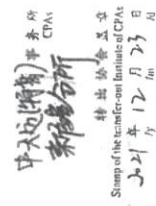 中天运(特普) 事务所
CPAs
分所
转出协会盖章
Stamp of the transfer-out Institute of CPAs
2021年12月23日
/y /m /d